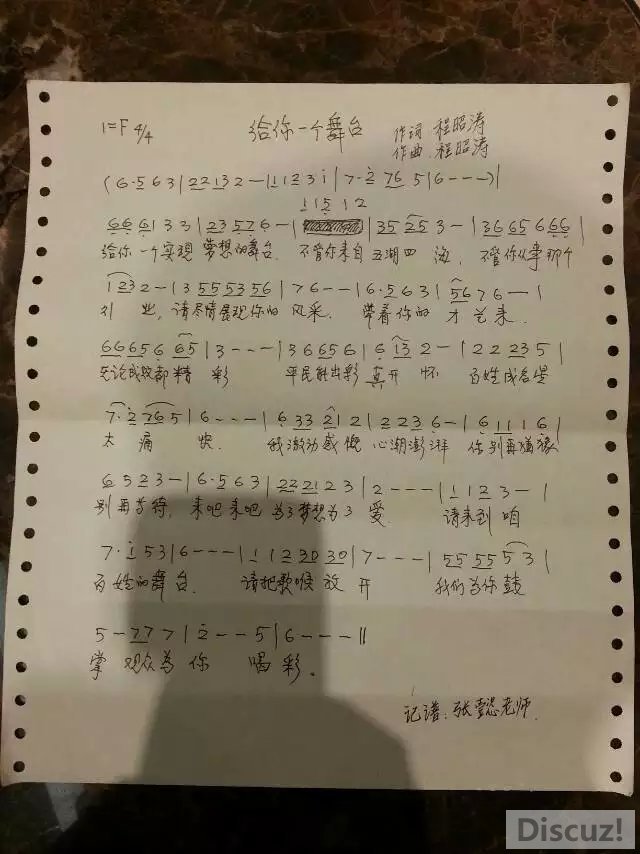 1=F 4/4 给你一个舞台 作词 程昭涛
作曲 程昭涛
(6·5 6 3|2 2 1 3 2 —|1 1 2 3 i|7·2 7 6 5|6 - - -)|
1 1 5 1 2
6 6 6 1 3 3|2 3 5 7 6 —| |3 5 2 5 3 —|3 6 6 5 6 6 6|
给你一个实现 梦想的舞台. 不管你来自 五湖四 海, 不管你从事那个
1 2 3 2 —|3 5 5 5 3 5 6|7 6 — —|6·5 6 3|5 6 7 6 — |
业, 请尽情展现你的 风采. 带着你的 才艺来.
6 6 6 5 6 6 5|3 - - -|3 6 6 5 6|6 1 3 2 —|2 2 2 3 5|
无论成败都精 彩 平民能出彩 真开 怀 百姓成名是
7·2 7 6 5|6 - - -|6 3 3 2 1 2|2 2 3 6 —|6 1 1 1 6|
太 痛 快. 我激动感慨 心潮澎湃 你别再犹豫
6 5 2 3 —|6·5 6 3|2 2 2 1 2 3|2 - - -|1 1 2 3 — |
别再等待, 来吧来吧 为了梦想为了 爱. 请来到咱
7·i 5 3|6 - - -|1 1 2 3 0 3 0|7 - - -|5 5 5 5 5 3|
百姓的舞台. 请把歌喉放 开 我们为你鼓
5 — 7 7 7|2 - - 5|6 - - -‖
掌 观众为 你 喝 彩.
记谱: 张 老师.
Discuz!